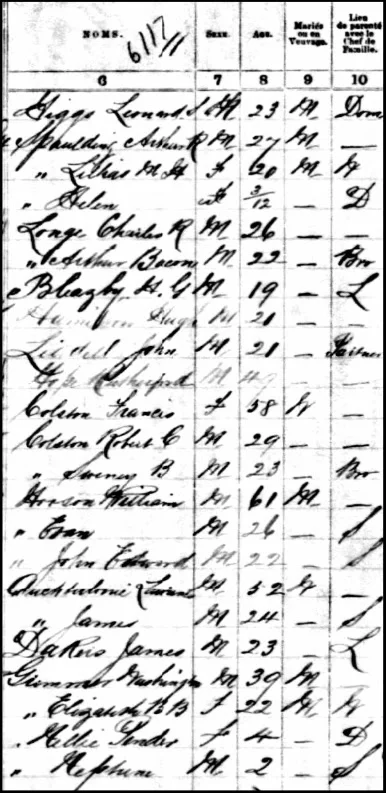 NOMS. SEXE. AGE. Mariés ou en Veuvage. Lien de parenté avec le Chef de Famille.
6117/11
6 7 8 9 10
Higgs Leonard S M 23 M Dom
Spaulding Arthur R M 27 M —
" Lillias M H F 20 M W
" Helen F 3/12 — D
Longe Charles R M 26 — —
" Arthur Bacon M 22 — Bro
Bleazby H. G M 19 — L
Hugh M 21 — —
John M 21 — Partner
Hope Rutherford M 49 — —
Colston Francis F 58 W —
Colston Robert C M 29 — —
" B M 23 — Bro
William M 61 M —
" Evan M 26 — S
" John Edward M 22 — S
M 52 W —
" James M 24 — S
James M 23 — L
Grimmer Washington M 39 M —
" Elizabeth B B F 22 M W
" Nellie F 4 — D
" M 2 — S